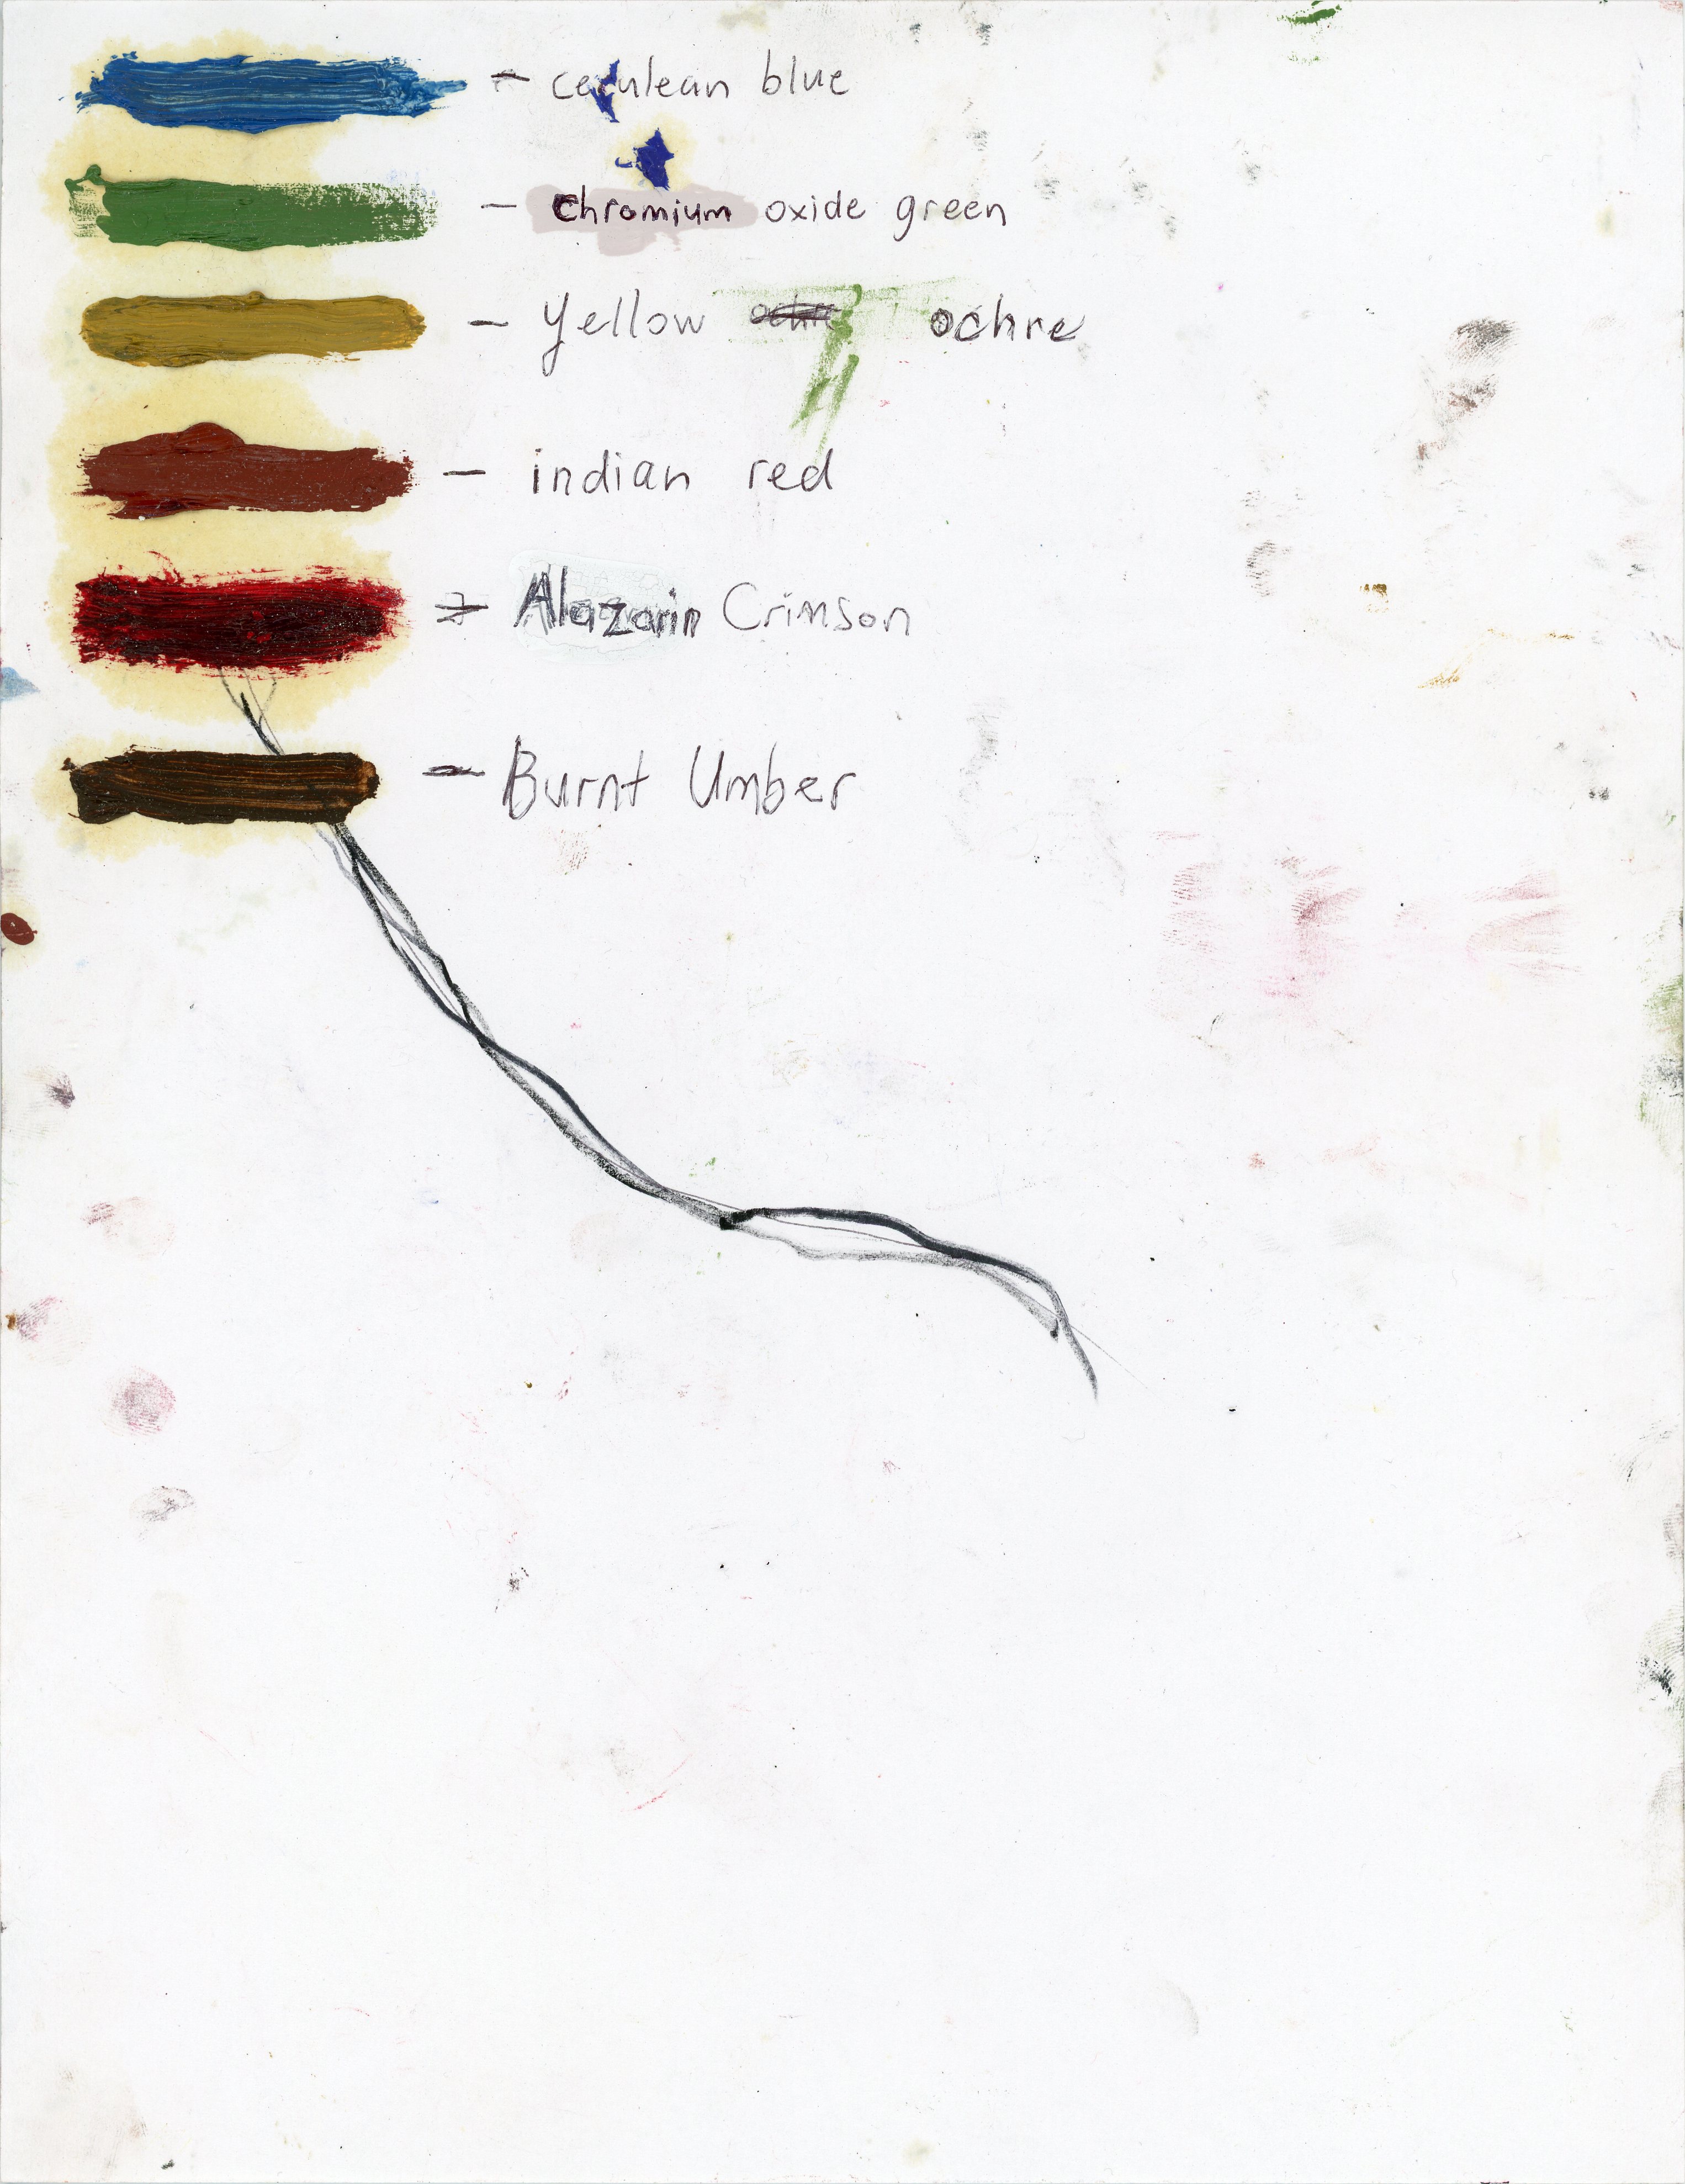 - cerulean blue
- chromium oxide green
- yellow ochre
- indian red
- Alazarin Crimson
- Burnt Umber